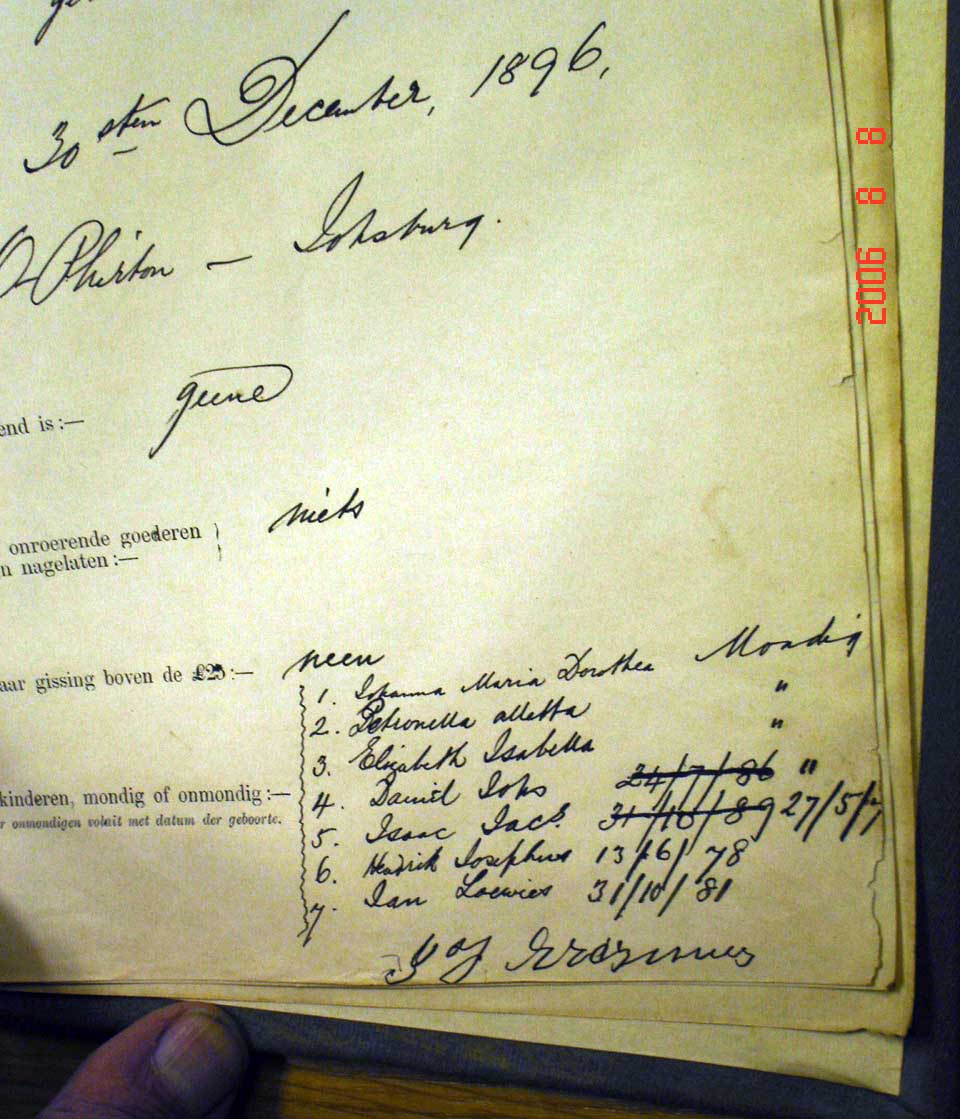 30 sten December, 1896.
Ophirton — Johsburg.
end is:— geene
onroerende goederen
n nagelaten:— niets
aar gissing boven de £25:— neen
1. Johanna Maria Dorothea Mondig
2. Petronella alletta "
3. Elizabeth Isabella "
kinderen, mondig of onmondig:— 4. Daniel Johs 24/7/86 "
r onmondigen voluit met datum der geboorte. 5. Isaac Jacs. 31/10/89 27/5/7
6. Hendrik Josephus 13/6/78
7. Jan Loewies 31/10/81
Erasmus
2006 8 8